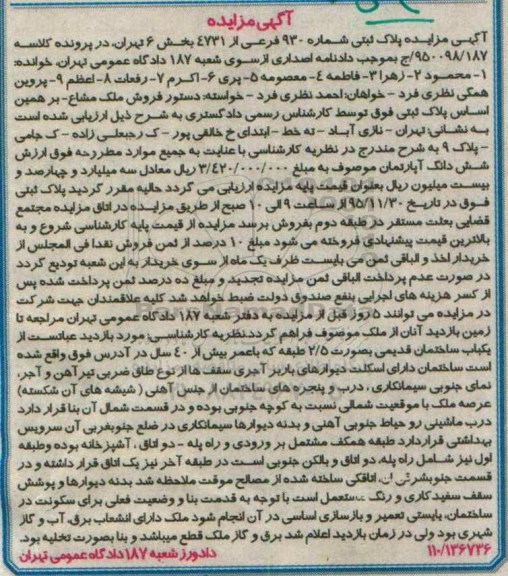 آگهی مزایده
آگهی مزایده پلاک ثبتی شماره ۹۳۰ فرعی از ۴۷۳۱ بخش ۶ تهران، در پرونده کلاسه
۹۵۰۰۹۸/۱۸۷/ج بموجب دادنامه اصداری ازسوی شعبه ۱۸۷ دادگاه عمومی تهران، خوانده:
۱- محمود ۲- زهرا ۳- فاطمه ۴- معصومه ۵- پری ۶- اکرم ۷- رفعات ۸- اعظم ۹- پروین
همگی نظری فرد - خواهان: احمد نظری فرد - خواسته: دستور فروش ملک مشاع- بر همین
اساس پلاک ثبتی فوق توسط کارشناس رسمی دادگستری به شرح ذیل ارزیابی شده است
به نشانی: تهران - نازی آباد - ته خط - ابتدای خ خالقی پور - ک رجبعلی زاده - ک جامی
- پلاک ۹ به شرح مندرج در نظریه کارشناسی با عنایت به جمیع موارد مطروحه فوق ارزش
شش دانگ آپارتمان موصوف به مبلغ ۳/۴۲۰/۰۰۰/۰۰۰ ریال معادل سه میلیارد و چهارصد و
بیست میلیون ریال بعنوان قیمت پایه مزایده ارزیابی می گردد حالیه مقرر گردید پلاک ثبتی
فوق در تاریخ ۹۵/۱۱/۳۰ از ساعت ۹ الی ۱۰ صبح از طریق مزایده در اتاق مزایده مجتمع
قضایی بعثت مستقر در طبقه دوم بفروش برسد مزایده از قیمت پایه کارشناسی شروع و به
بالاترین قیمت پیشنهادی فروخته می شود مبلغ ۱۰ درصد از ثمن فروش نقدا فی المجلس از
خریدار اخذ و الباقی ثمن می بایست ظرف یک ماه از سوی خریدار به این شعبه تودیع گردد
در صورت عدم پرداخت الباقی ثمن مزایده تجدید و مبلغ ده درصد ثمن پرداخت شده پس
از کسر هزینه های اجرایی بنفع صندوق دولت ضبط خواهد شد کلیه علاقمندان جهت شرکت
در مزایده می توانند ۵ روز قبل از مزایده به دفتر شعبه ۱۸۷ دادگاه عمومی تهران مراجعه تا
زمین بازدید آنان از ملک موصوف فراهم گردد.نظریه کارشناسی: مورد بازدید عباتست از
یکباب ساختمان قدیمی بصورت ۲/۵ طبقه که باعمر بیش از ۴۰ سال در آدرس فوق واقع شده
است ساختمان دارای اسکلت دیوارهای باربر آجری سقف ها از نوع طاق ضربی تیر آهن و آجر،
نمای جنوبی سیمانکاری، درب و پنجره های ساختمان از جنس آهنی (شیشه های آن شکسته)
عرصه ملک با موقعیت شمالی نسبت به کوچه جنوبی بوده و در قسمت شمال آن بنا قرار دارد
درب ماشینی رو حیاط جنوبی آهنی و بدنه دیوارها سیمانکاری در ضلع جنوبغربی آن سرویس
بهداشتی قراردارد طبقه همکف مشتمل بر ورودی و راه پله - دو اتاق، آشپزخانه بوده وطبقه
اول نیز شامل راه پله، دو اتاق و بالکن جنوبی است در طبقه آخر نیز یک اتاق قرار داشته و در
قسمت جنوبشرقی آن، اتاقکی ساخته شده از مصالح موقت ملاحظه شد بدنه دیوارها و پوشش
سقف سفید کاری و رنگ مستعمل است با توجه به قدمت بنا و وضعیت فعلی برای سکونت در
ساختمان، بایستی تعمیر و بازسازی اساسی در آن انجام شود ملک دارای انشعاب برق، آب و گاز
شهری بود ولی در زمان بازدید اعلام شد برق و گاز ملک قطع میباشد و بنا بصورت تخلیه بود.
۱۱۰/۱۳۶۷۳۶ دادورز شعبه ۱۸۷ دادگاه عمومی تهران